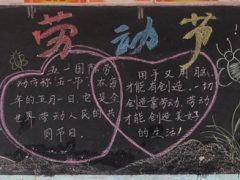 劳动节
五一国际劳
动节称五一节，在每
年的五月一日。它是全
世界劳动人民的共
同节日。
用手又用脑，
才能有创造。一切
创造靠劳动，劳动
才能创造美好
的生活！